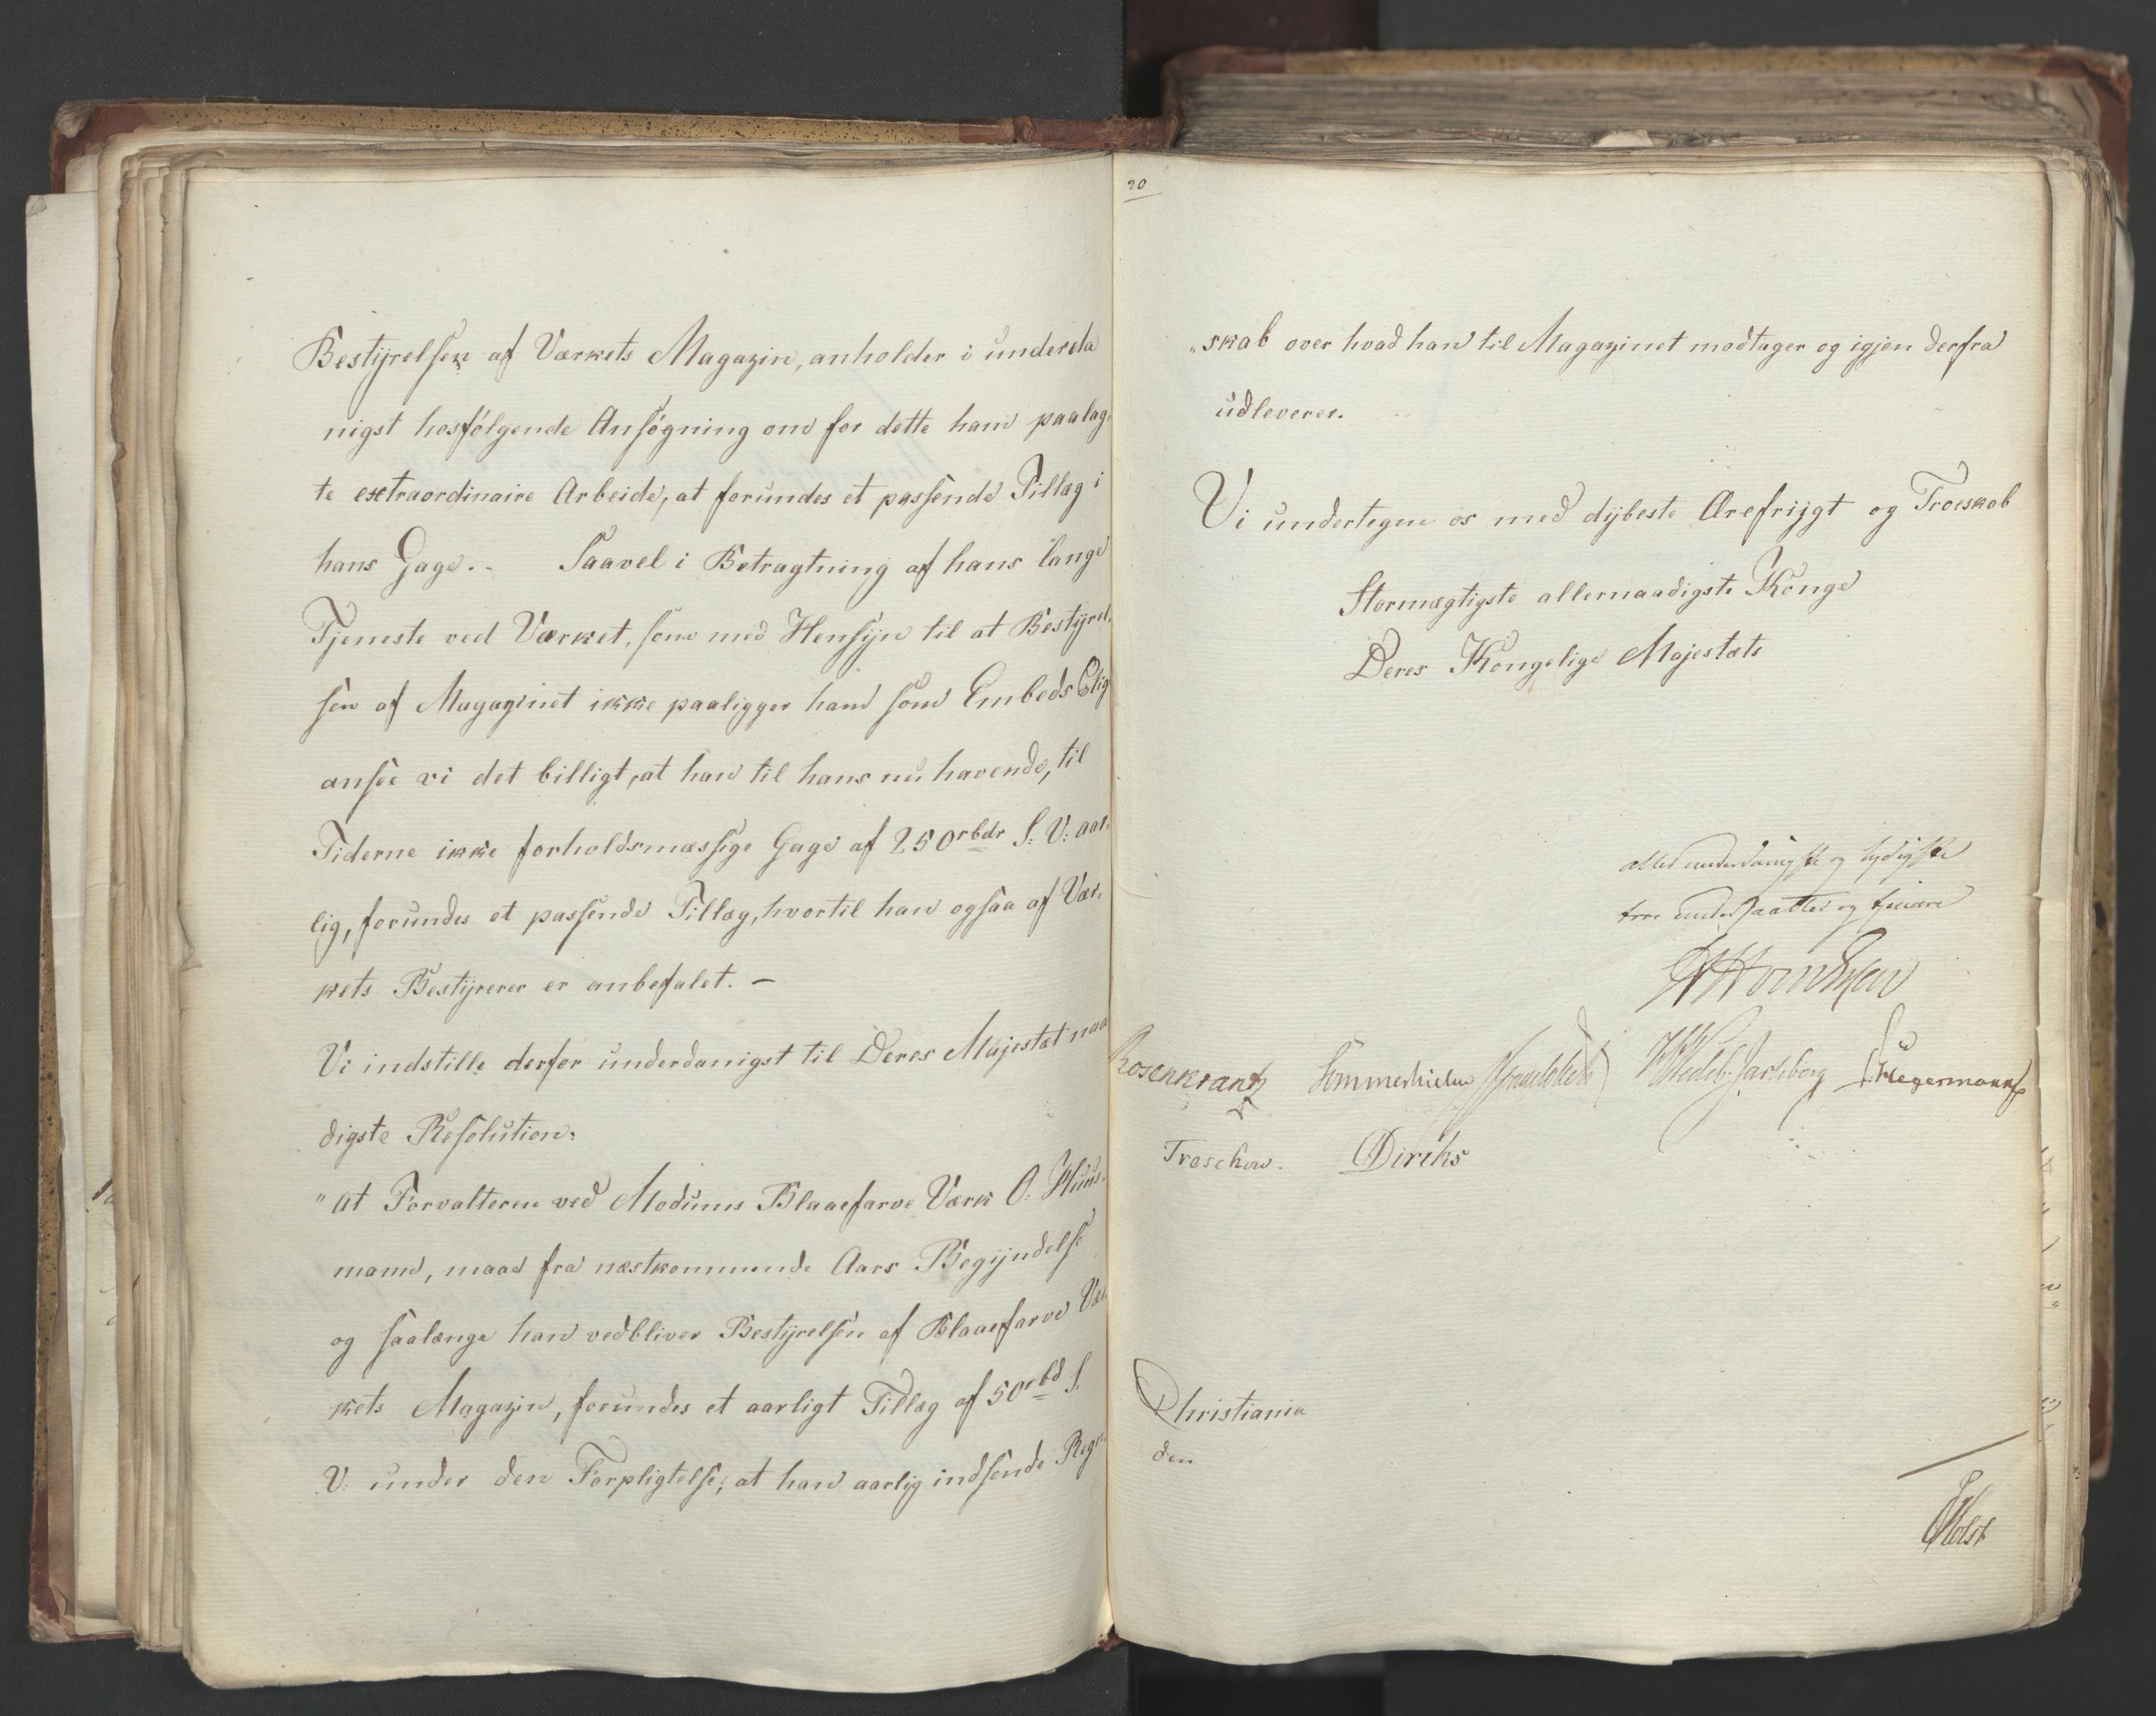 Bestyrelsen af Værkets Magazin, anholder i underda
nigst hosfølgende Ansøgning om for dette ham paalag,
te extraordinaire Arbeide, at forundes et passende Tillæg i
hans Gage. - Saavel i Betragtning af hans lange
Tjeneste ved Værket, som med Hensyn til at Bestyrel,
sen af Magazinet ikke paaligger ham som Embeds Plig
ansee vi det billigt, at han til hans nu havende, til
Tiderne ikke forholdsmæssige Gage af 250 rbdr S: V: aar,
lig, forundes et passende Tillæg, hvortil han ogsaa af Vær,
kets Bestyrerer er anbefalet. -
Vi indstille derfor underdanigst til Deres Majestæt naa
digste Resolution:
" at Forvalteren ved Modums Blaaefarve Værk O:
mand, maae fra næstkommende Aars Begyndelse
og saalænge han vedbliver Bestyrelsen af Blaaefarve Vær
kets Magazin, forundes et aarligt Tillæg af 50 rbd S.
V: under den Forpligtelse, at han aarlig indsende Regn
20
"skab over hvad han til Magazinet modtager og igjen derfra
udleverer.
Vi undertegne os med dybeste Ærefrygt og Troeskab
Stormægtigste allernaadigste Konge
Deres Kongelige Majestæts
allerunderdanigste og lydigste
troe undersaatter og tjenere
Rosenkrantz Sommerhielm Wedel-Jarlsberg Hegermann
Treschow. Diriks
Christiania
den
Holst